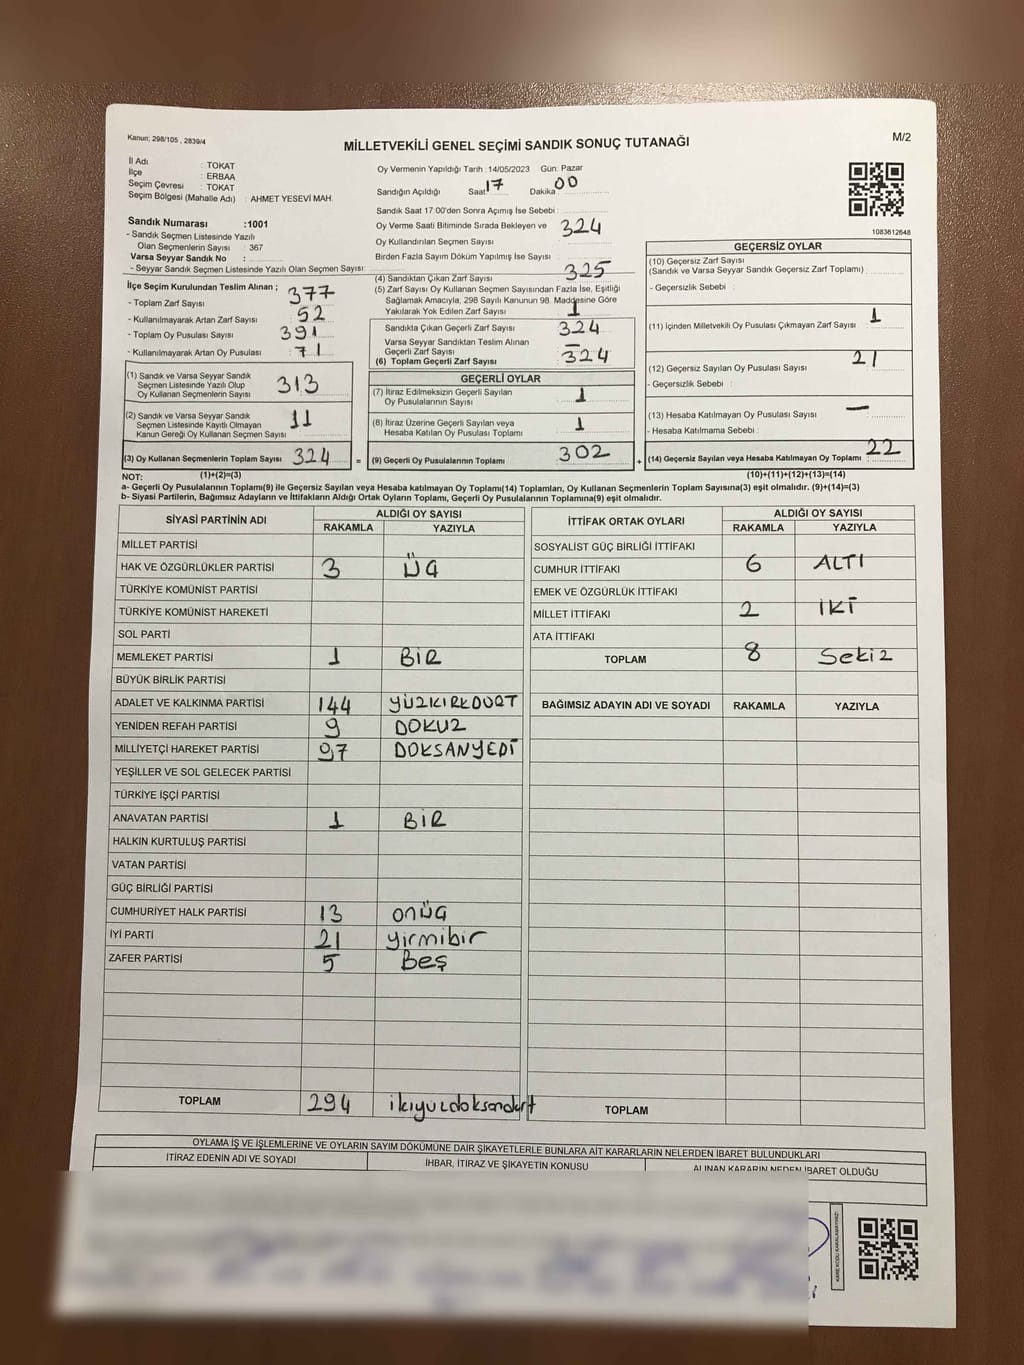 Kanun; 298/105 , 2839/4
M/2
MİLLETVEKİLİ GENEL SEÇİMİ SANDIK SONUÇ TUTANAĞI
İl Adı : TOKAT
İlçe : ERBAA
Seçim Çevresi : TOKAT
Seçim Bölgesi (Mahalle Adı) : AHMET YESEVİ MAH.
Oy Vermenin Yapıldığı Tarih :14/05/2023 Gün: Pazar
Sandığın Açıldığı Saat 17 Dakika 00
Sandık Saat 17:00'den Sonra Açımış İse Sebebi :
Oy Verme Saati Bitiminde Sırada Bekleyen ve
Oy Kullandırılan Seçmen Sayısı 324
Birden Fazla Sayım Döküm Yapılmış İse Sayısı :
1083612648
Sandık Numarası :1001
- Sandık Seçmen Listesinde Yazılı
Olan Seçmenlerin Sayısı : 367
Varsa Seyyar Sandık No :
- Seyyar Sandık Seçmen Listesinde Yazılı Olan Seçmen Sayısı:
İlçe Seçim Kurulundan Teslim Alınan ;
- Toplam Zarf Sayısı : 377
- Kullanılmayarak Artan Zarf Sayısı : 52
- Toplam Oy Pusulası Sayısı : 391
- Kullanılmayarak Artan Oy Pusulası : 71
(1) Sandık ve Varsa Seyyar Sandık
Seçmen Listesinde Yazılı Olup
Oy Kullanan Seçmenlerin Sayısı : 313
(2) Sandık ve Varsa Seyyar Sandık
Seçmen Listesinde Kayıtlı Olmayan
Kanun Gereği Oy Kullanan Seçmen Sayısı 11
(3) Oy Kullanan Seçmenlerin Toplam Sayısı 324 =
(4) Sandıktan Çıkan Zarf Sayısı 325
(5) Zarf Sayısı Oy Kullanan Seçmen Sayısından Fazla İse, Eşitliği
Sağlamak Amacıyla; 298 Sayılı Kanunun 98. Maddesine Göre
Yakılarak Yok Edilen Zarf Sayısı 1
Sandıkta Çıkan Geçerli Zarf Sayısı : 324
Varsa Seyyar Sandıktan Teslim Alınan
Geçerli Zarf Sayısı : –
(6) Toplam Geçerli Zarf Sayısı : 324
GEÇERLİ OYLAR
(7) İtiraz Edilmeksizin Geçerli Sayılan
Oy Pusulalarının Sayısı : 1
(8) İtiraz Üzerine Geçerli Sayılan veya
Hesaba Katılan Oy Pusulası Toplamı : 1
(9) Geçerli Oy Pusulalarının Toplamı : 302 +
GEÇERSİZ OYLAR
(10) Geçersiz Zarf Sayısı
(Sandık ve Varsa Seyyar Sandık Geçersiz Zarf Toplamı)
- Geçersizlik Sebebi :
(11) İçinden Milletvekili Oy Pusulası Çıkmayan Zarf Sayısı : 1
(12) Geçersiz Sayılan Oy Pusulası Sayısı : 21
- Geçersizlik Sebebi :
(13) Hesaba Katılmayan Oy Pusulası Sayısı : —
- Hesaba Katılmama Sebebi :
(14) Geçersiz Sayılan veya Hesaba Katılmayan Oy Toplamı : 22
NOT: (1)+(2)=(3) (10)+(11)+(12)+(13)=(14)
a- Geçerli Oy Pusulalarının Toplamı(9) ile Geçersiz Sayılan veya Hesaba katılmayan Oy Toplamı(14) Toplamları, Oy Kullanan Seçmenlerin Toplam Sayısına(3) eşit olmalıdır. (9)+(14)=(3)
b- Siyasi Partilerin, Bağımsız Adayların ve İttifakların Aldığı Ortak Oyların Toplamı, Geçerli Oy Pusulalarının Toplamına(9) eşit olmalıdır.
SİYASİ PARTİNİN ADI ALDIĞI OY SAYISI
RAKAMLA YAZIYLA
MİLLET PARTİSİ
HAK VE ÖZGÜRLÜKLER PARTİSİ 3 ÜÇ
TÜRKİYE KOMÜNİST PARTİSİ
TÜRKİYE KOMÜNİST HAREKETİ
SOL PARTİ
MEMLEKET PARTİSİ 1 BİR
BÜYÜK BİRLİK PARTİSİ
ADALET VE KALKINMA PARTİSİ 144 YÜZKIRKDÖRT
YENİDEN REFAH PARTİSİ 9 DOKUZ
MİLLİYETÇİ HAREKET PARTİSİ 97 DOKSANYEDİ
YEŞİLLER VE SOL GELECEK PARTİSİ
TÜRKİYE İŞÇİ PARTİSİ
ANAVATAN PARTİSİ 1 BİR
HALKIN KURTULUŞ PARTİSİ
VATAN PARTİSİ
GÜÇ BİRLİĞİ PARTİSİ
CUMHURİYET HALK PARTİSİ 13 onüç
İYİ PARTİ 21 yirmibir
ZAFER PARTİSİ 5 Beş
TOPLAM 294 ikiyuzdoksandört
İTTİFAK ORTAK OYLARI ALDIĞI OY SAYISI
RAKAMLA YAZIYLA
SOSYALİST GÜÇ BİRLİĞİ İTTİFAKI
CUMHUR İTTİFAKI 6 ALTI
EMEK VE ÖZGÜRLÜK İTTİFAKI
MİLLET İTTİFAKI 2 İKİ
ATA İTTİFAKI
TOPLAM 8 Sekiz
BAĞIMSIZ ADAYIN ADI VE SOYADI RAKAMLA YAZIYLA
TOPLAM
OYLAMA İŞ VE İŞLEMLERİNE VE OYLARIN SAYIM DÖKÜMÜNE DAİR ŞİKAYETLERLE BUNLARA AİT KARARLARIN NELERDEN İBARET BULUNDUKLARI
İTİRAZ EDENİN ADI VE SOYADI İHBAR, İTİRAZ VE ŞİKAYETİN KONUSU ALINAN KARARIN NEDEN İBARET OLDUĞU
KARE KODU KARALAMAYINIZ!